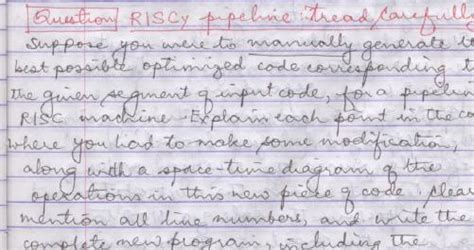 Question RISCy pipeline: tread carefull
Suppose you were to manually generate t
best possible optimized code corresponding t
the given segment of input code, for a pipelin
RISC machine. Explain each point in the co
where you had to make some modification,
along with a space-time diagram of the
operations in this new piece of code. Clear
mention all line numbers, and write the
complete new program, including the